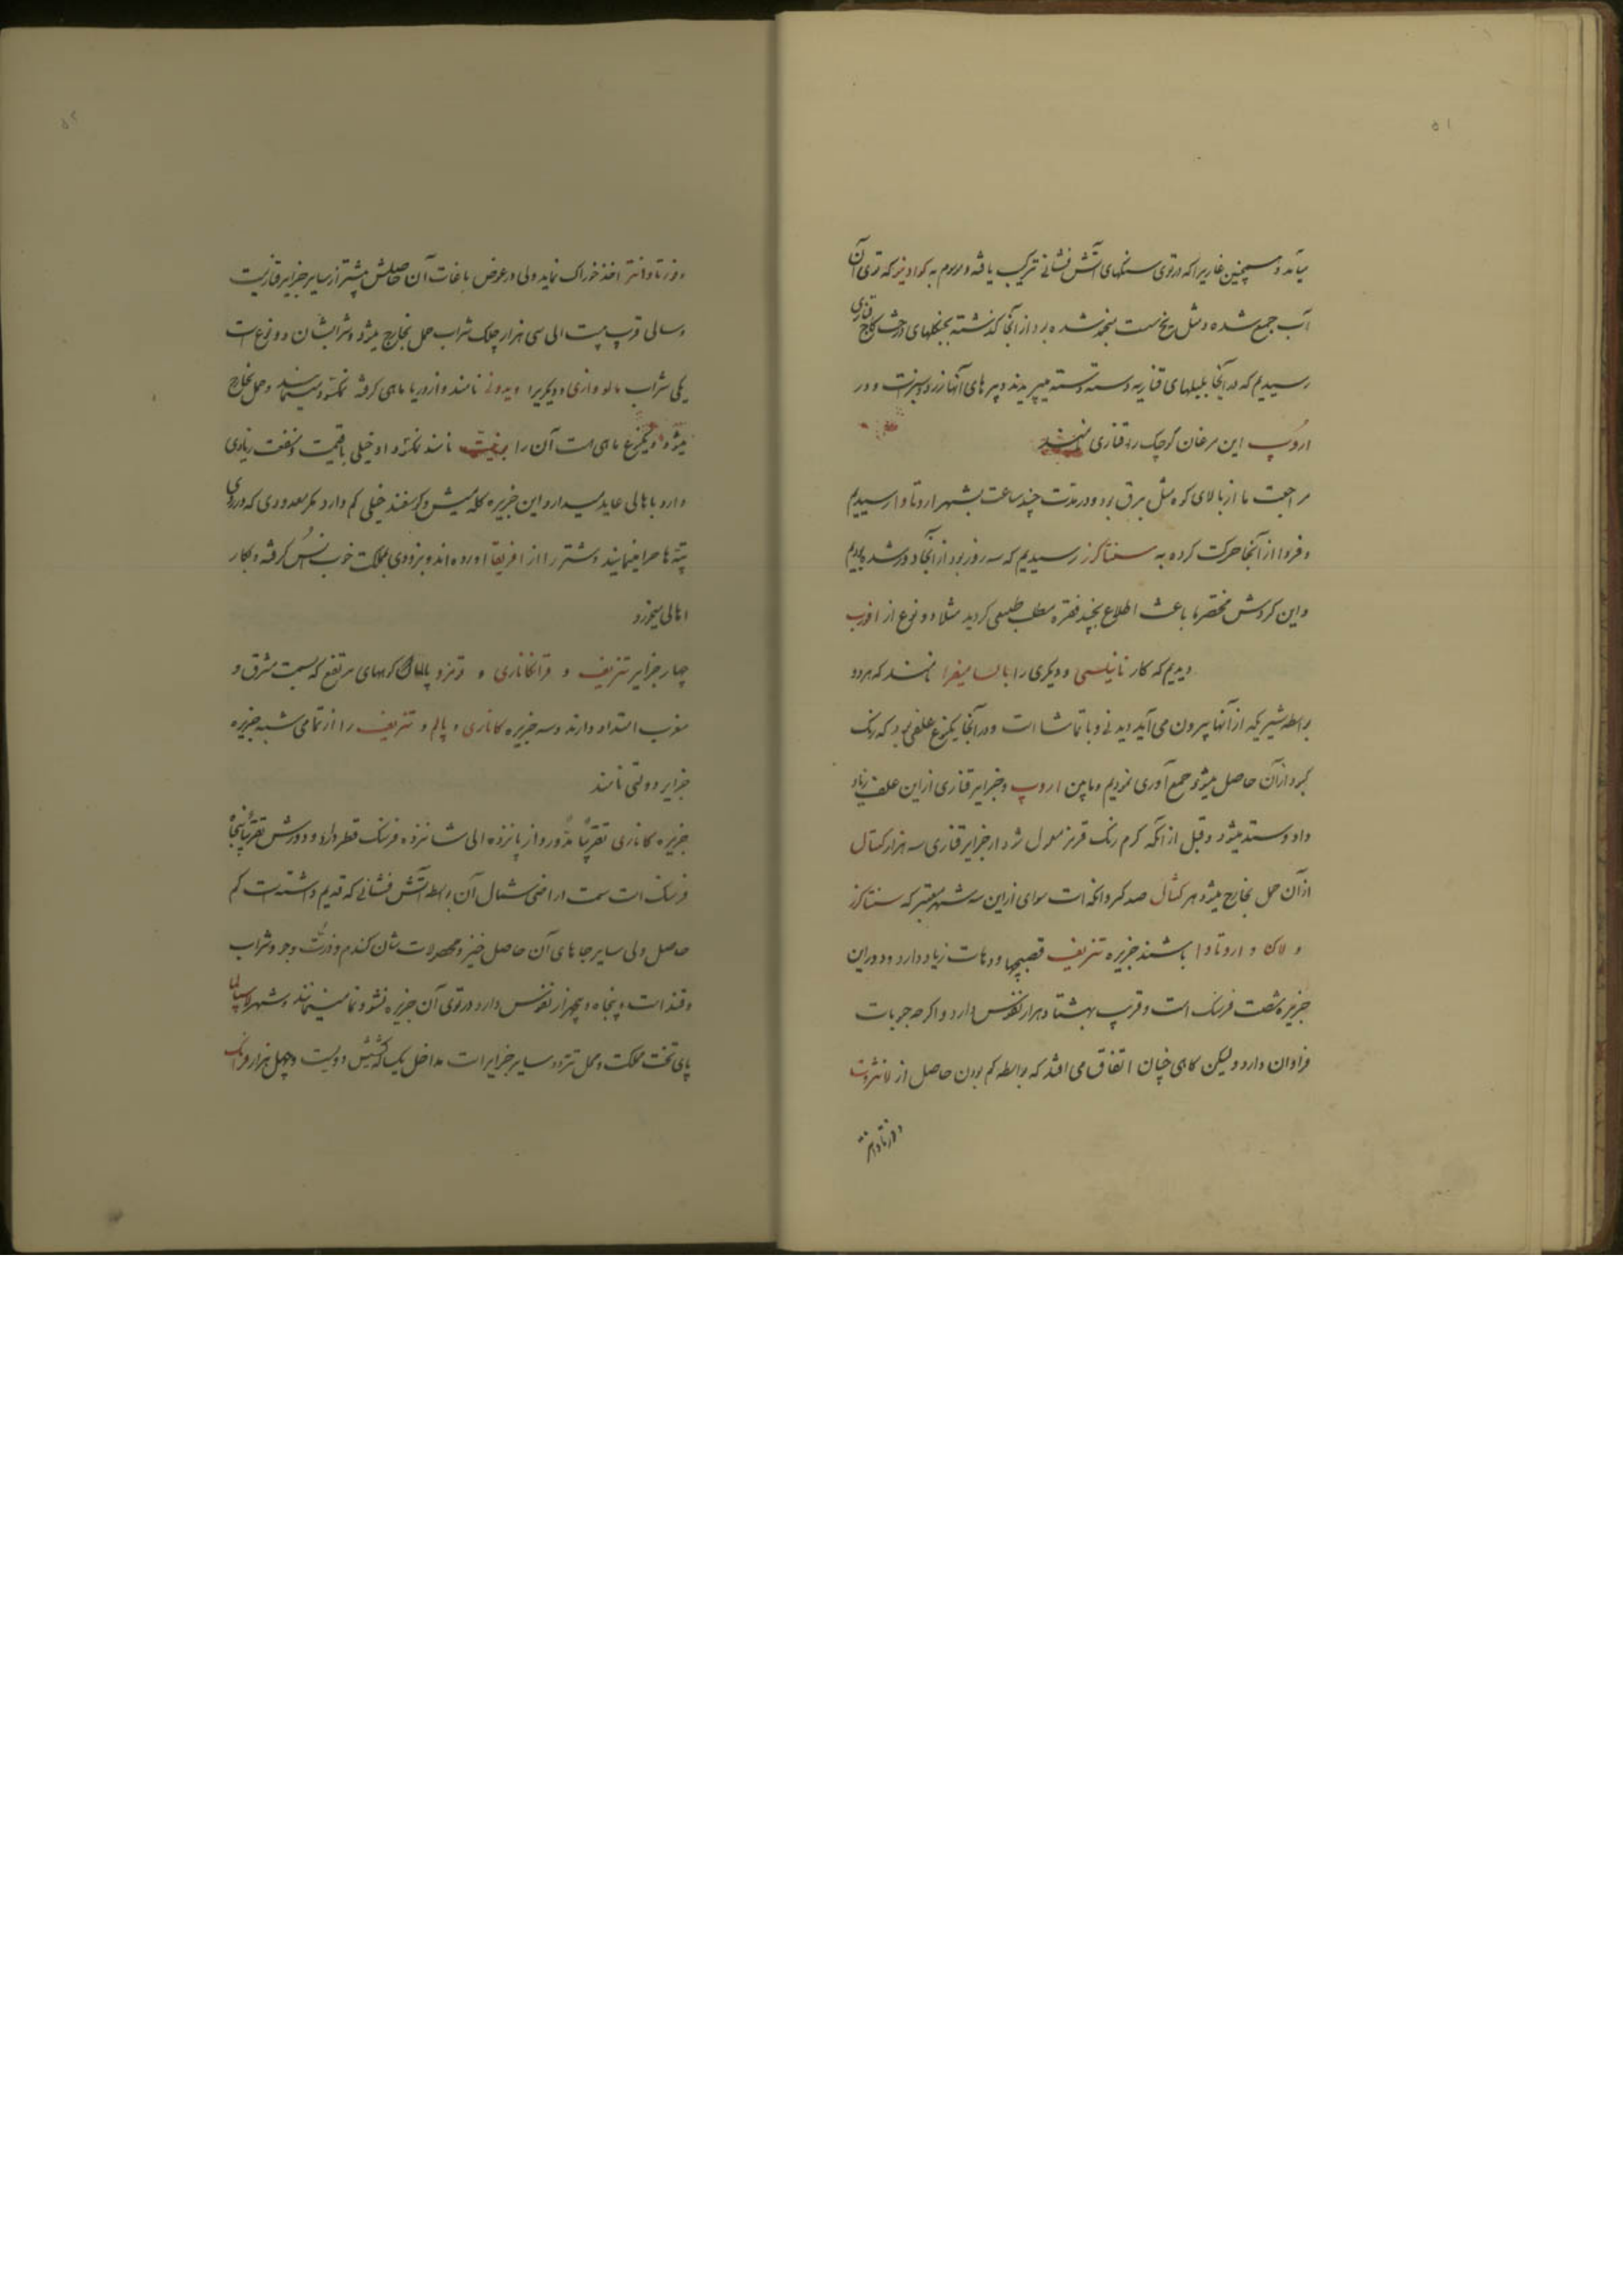 ۵۱
میآمد و همچنین غاریرا که در توی سنگهای آتش فشانی ترکیب یافته و موسوم به کوادنو که توی آن
آب جمع شده و مثل یخ سخت منجمد شده بود از آنجا گذشته بجنگلهای درخت کاج قناری
رسیدیم که در آنجا بلبلهای قناریه دسته دسته میپریدند و پرهای آنها زرد و سبز است و در
اروپ این مرغان کوچک را قناری نامند
مراجعت ما از بالای کوه مثل برق بود و در مدت چند ساعت بشهر اروتاوا رسیدیم
و فردا از آنجا حرکت کرده به سنتاکرز رسیدیم که سه روز بود از آنجا دور شده بودیم
و این گردش مختصر ما باعث اطلاع بچند فقره مطلب طبیعی گردید مثلا دو نوع از افرب
دیدیم که کار نانیلسی و دیگری را بالسمیفرا نامند که هر دو
بواسطه شیریکه از آنها بیرون می آید دیدنی و با تماشا است و در آنجا یکنوع علفی بود که رنگ
کبود از آن حاصل میشود جمع آوری نمودیم و مابین اروپ و جزایر قناری از این علف زیاد
داد و ستد میشود و قبل از آنکه کرم رنگ قرمز معمول شود از جزایر قناری سه هزار کنتال
از آن حمل بخارج میشد هر کنتال صد گروانکه است سوای از این سه شهر معتبر که سنتاکرز
و لاگ و اروتاوا باشند جزیره تنریف قصبچها و دهات زیاد دارد و دور این
جزیره شصت فرسنگ است و قریب بهشتاد هزار نفوس دارد و اگر چه حبوبات
فراوان دارد ولیکن گاهی چنان اتفاق می افتد که بواسطه کم بودن حاصل از لانثروت
و فرتاوانتر
۵۲
و فرتاوانتر اخذ خوراک نماید ولی در عوض باغات آن حاصلش بیشتر از سایر جزایر قناریست
و سالی قریب بیست الی سی هزار چلیک شراب حمل بخارج میشود و شرابشان دو نوع است
یکی شراب مالووازی و دیگریرا ویدونی نامند و از دریا ماهی گرفته نمکسود مینمایند و حمل بخارج
میشود و یکنوع ماهی است آن را بونیت نامند نمکسود او خیلی با قیمت و منفعت زیادی
دارد باهالی عاید میدارد این جزیره گله میش و گوسفند خیلی کم دارد مگر معدودی که در روی
تپه ها چرا مینمایند و شتر را از افریقا آورده اند و بزودی بمملکت خوب انس گرفته و بکار
اهالی میخورد
چهار جزایر تنریف و قرانکاناری و قومرو پالما کوههای مرتفع که بسمت مشرق و
مغرب امتداد دارند و سه جزیره کاناری و پالم و تنریف را از تمامی شبه جزیره
جزایر دولتی نامند
جزیره کاناری تقریباً مدور و از پانزده الی شانزده فرسنگ قطر دارد و دورش تقریباً پنجاه
فرسنگ است سمت اراضی شمال آن بواسطه آتش فشانی که قدیم داشته است کم
حاصل ولی سایر جاهای آن حاصل خیز و محصولات شان گندم و ذرت و جو و شراب
و قند است و پنجاه و پنجهزار نفوس دارد در توی آن جزیره نشو و نما مینمایند و شهر لاسپالما
پای تخت مملکت و محل تردد سایر جزایر است مداخل یک کشیش دویست و چهل هزار فرانک